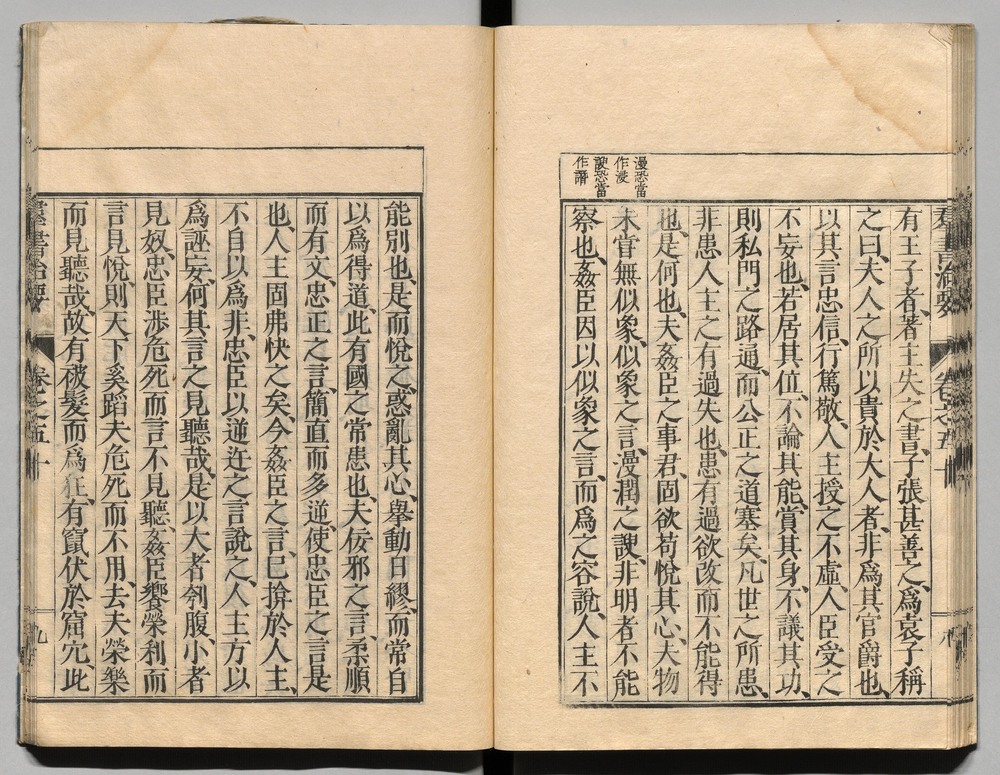 漫恐當
作浸
諛恐當
作譖
有王子者、著主失之書、子張甚善之、爲袁子稱
之曰、夫人之所以貴於大人者、非爲其官爵也、
以其言忠信、行篤敬、人主授之不虛、人臣受之
不妄也、若居其位、不論其能、賞其身、不議其功、
則私門之路通、而公正之道塞矣、凡世之所患、
非患人主之有過失也、患有過欲改而不能得
也、是何也、夫姦臣之事君、固欲苟悅其心、夫物
未甞無似象、似象之言、漫潤之諛、非明者不能
察也、姦臣因以似象之言、而爲之容說、人主不
羣書治要
卷之五十
八
能別也、是而悅之、惑亂其心、舉動日繆、而常自
以爲得道、此有國之常患也、夫佞邪之言、柔順
而有文、忠正之言、簡直而多逆、使忠臣之言是
也、人主固弗快之矣、今姦臣之言、已揜於人主、
不自以爲非、忠臣以逆迕之言說之、人主方以
爲誣妄、何其言之見聽哉、是以大者刳腹、小者
見奴、忠臣涉危死而言不見聽、姦臣饗榮利而
言見悅、則天下奚蹈夫危死而不用、去夫榮樂
而見聽哉、故有被髮而爲狂、有竄伏於窟穴、此
羣書治要
卷之五十
九